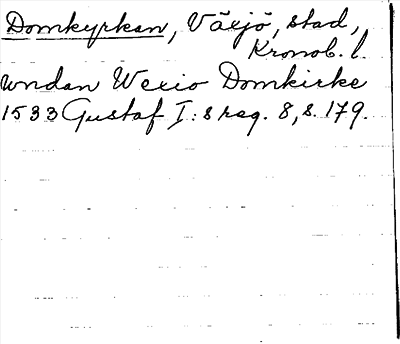 Domkyrkan, Växjö, stad,
Kronob. l.
wndan Wexio Domkirke
1533 Gustaf I:s reg. 8, s. 179.